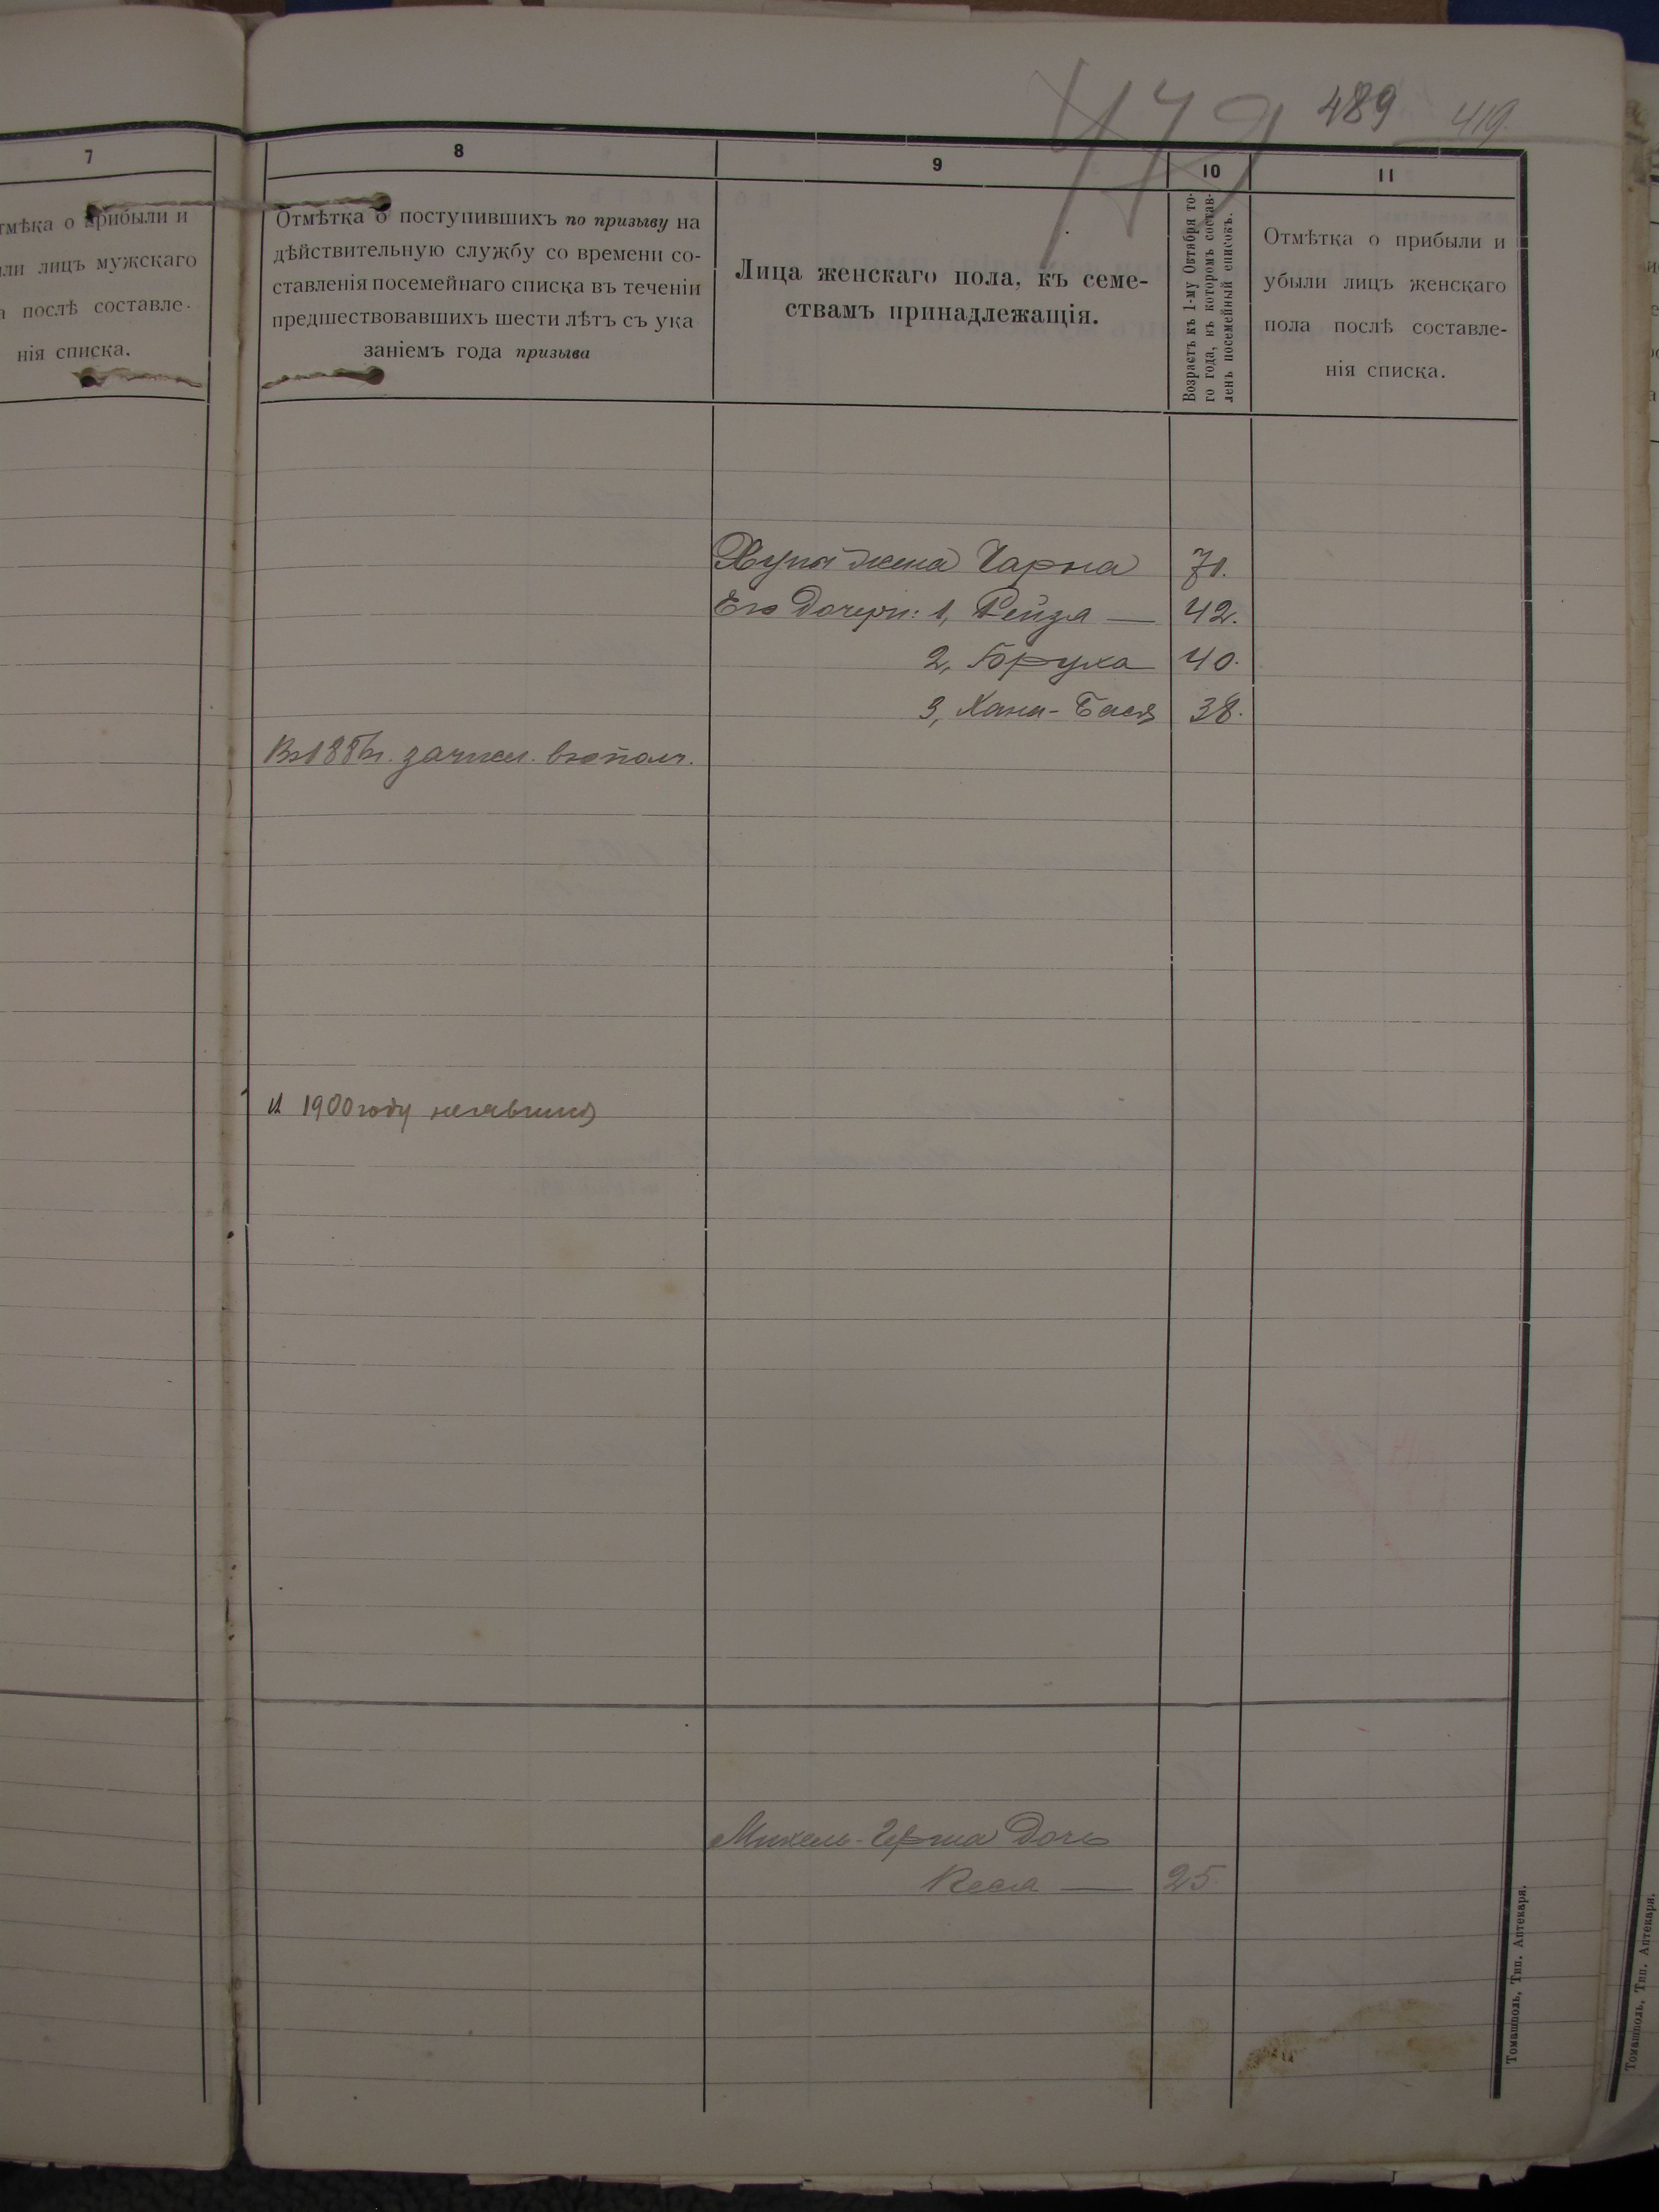 479 489 419.
7
тмѣка о прибыли и
ли лицъ мужскаго
а послѣ составле-
нія списка.
8
Отмѣтка о поступившихъ по призыву на
дѣйствительную службу со времени со-
ставленія посемейнаго списка въ теченіи
предшествовавшихъ шести лѣтъ съ ука
заніемъ года призыва
9
Лица женскаго пола, къ семе-
ствамъ принадлежащія.
10
Возрастъ къ 1-му Октября то-
го года, въ которомъ состав-
ленъ посемейный списокъ.
11
Отмѣтка о прибыли и
убыли лицъ женскаго
пола послѣ составле-
нія списка.
жена Чарна 71.
Его дочери: 1, Рейзя — 42.
2, Бруха 40.
3, Хана-Бася 38.
зачисл. в ополч.
1900 году неявился
Михель-Герша дочь
Кеся — 25
Томашполь, Тип. Аптекаря.
Томашполь, Тип. Аптекаря.